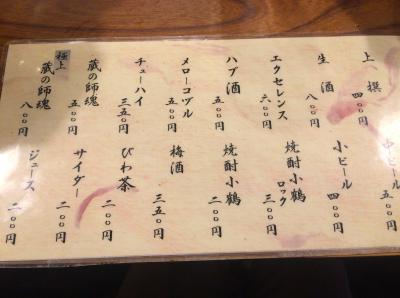 上撰 四〇〇円
生酒 八〇〇円
エクセレンス 六〇〇円
ハブ酒 五〇〇円
メローコヅル 五〇〇円
チューハイ 三五〇円
蔵の師魂 五〇〇円
極上 蔵の師魂 八〇〇円
中ビール 五〇〇円
小ビール 四〇〇円
焼酎小鶴 ロック 三〇〇円
焼酎小鶴 二〇〇円
梅酒 三五〇円
びわ茶 二〇〇円
サイダー 二〇〇円
ジュース 二〇〇円